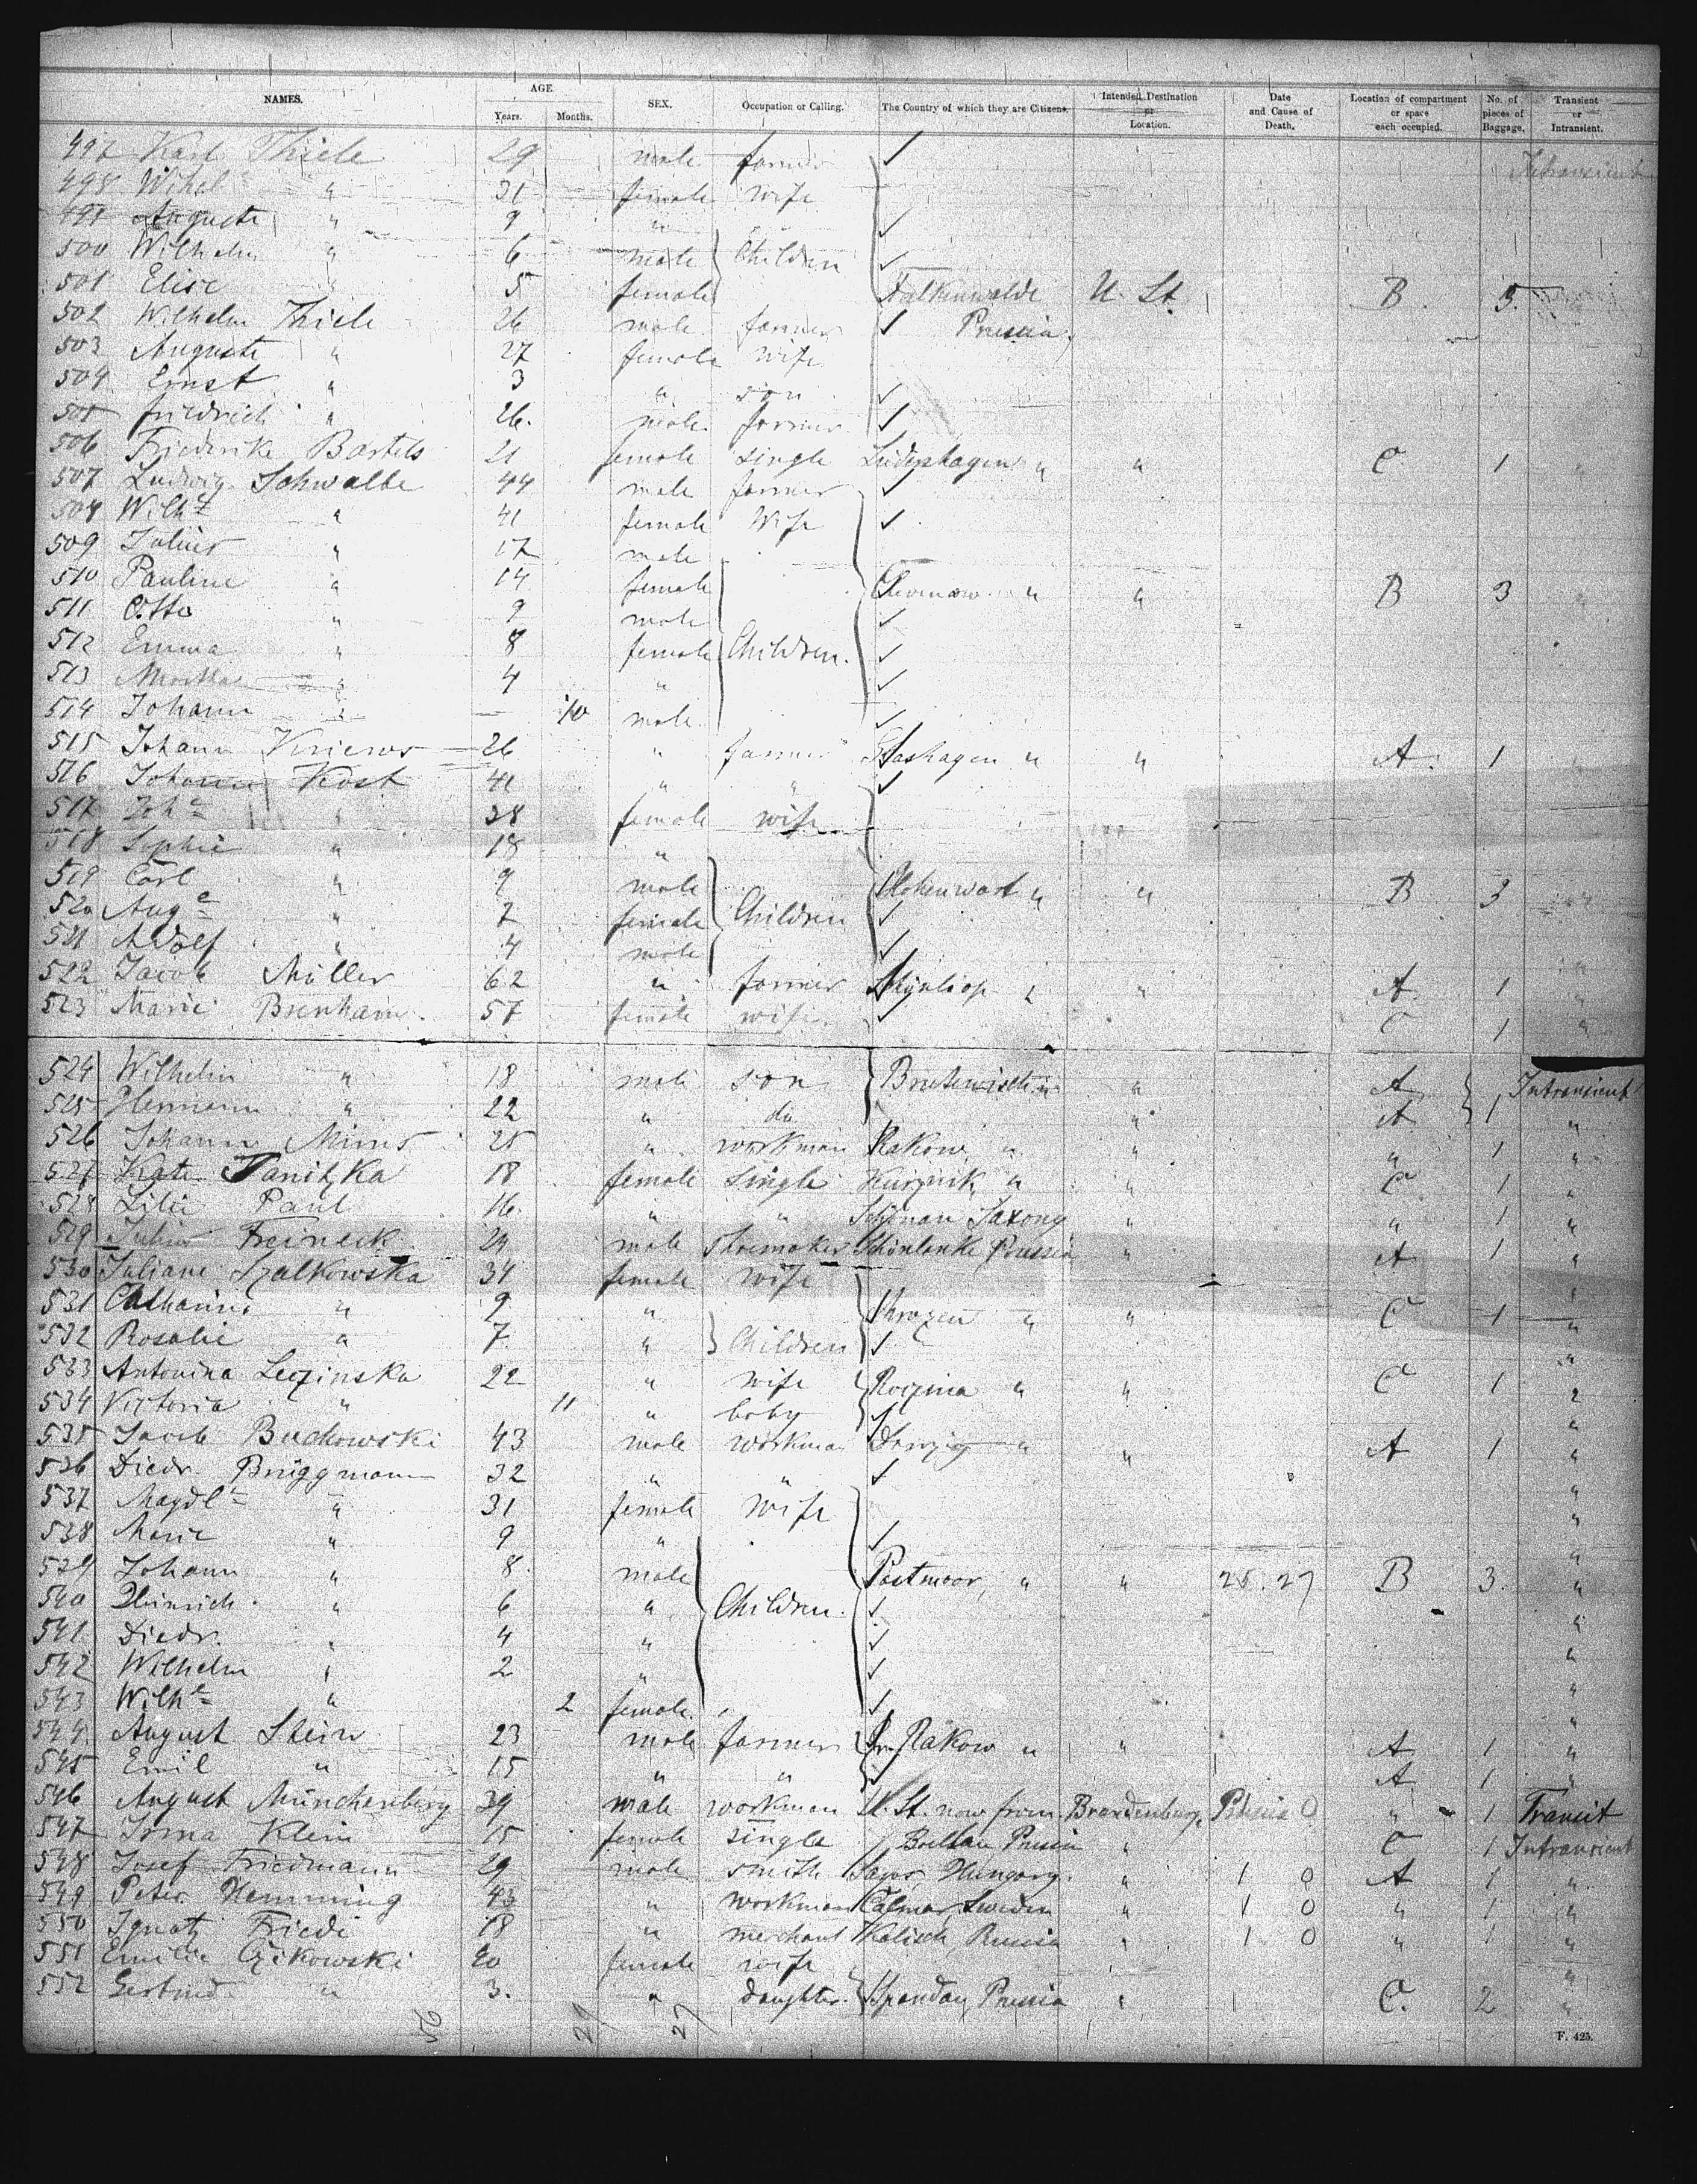 NAMES. AGE Years. Months. SEX. Occupation or Calling. The Country of which they are Citizens. Intended Destination or Location. Date and Cause of Death. Location of compartment or space each occupied. No. of pieces of Baggage. Transient or Intransient.
497 Karl Thiele 29 male farmer Intransient
498 Wihel " 31 female wife
499 Auguste " 9 "
500 Wilhelm " 6 male Children
501 Elise " 5 female Falkenwalde U. St. B 3.
502 Wilhelm Thiele 26 male farmer Prussia.
503 Auguste " 27 female wife
504 Ernst " 3 " son
505 friedrich " 26. male. farmer
506 Friederike Bartels 21 female single " " C 1 "
507 Ludwig Schwalbe 44 male farmer
508 Wilh " 41 female Wife
509 Julius " 17 male
510 Pauline " 14 female " " B 3 "
511 Otto " 9 male
512 Emma " 8 female Children.
513 Martha " 4 "
514 Johann " — 10 male
515 Johann 26 " farmer " " A. 1 "
516 Johann Kost 41 " "
517 Joh " 38 female wife
518 Sophie " 18 "
519 Carl " 9 male " " B 3
520 Aug " 7 female Children
521 Adolf " 4 male
522 Jacob Müller 62 " farmer " A 1 "
523 Marie 57 female wife C 1 "
524 Wilhelm " 18 male son " A Intransient
525 Hermann " 22 " do " A 1 "
526 Johann 25 " workman Rakow " " " 1 "
527 Kate Tanitzka 18 female single Kurznik " " C 1 "
528 Lilie Paul 16. " " Schönau Saxony " " 1 "
529 Julius Freineck 24 male Shoemaker Schönlanke Prussia " A 1 "
530 Juliane Szalkowska 34 female wife
531 Catharina " 9 " " " C 1 "
532 Rosalie " 7 " Children
533 Antonina Leozinska 22 " wife " " C 1
534 Victoria " 11 " baby
535 Jacob Buchowski 43 male workman Danzig " " A 1 "
536 Diedr. Brüggmann 32 " "
537 Magdl " 31 female wife
538 Marie " 9 "
539 Johann " 8 male Postmoor, " " 25.27 B 3. "
540 Hinrich " 6 " Children.
541 Diedr. " 4 "
542 Wilhelm " 2 "
543 Wilh " 2 female.
544 August Stein 23 male farmer Rakow " " A 1 "
545 Emil " 15 " " A 1 "
546 August Münchenberg 39 male workman U. St. now from Brandenburg, Prussia 0 " 1 Transit
547 Irma Klein 15 female single Prussia " C 1 Intransient
548 Josef Friedmann 29 male smith Hungary. " 1 0 A 1 "
549 Peter Hemming 43 " workman Calmar, Sweden " 1 0 " 1 "
550 Ignatz Friedi 18 " merchant Kalisch, Russia " 1 0 " 1 "
551 Emilie Czikowski 20 female wife
552 Gertrud " 3. " daughter. Spandau, Prussia " C. 2 "
56 29 27
F. 425.